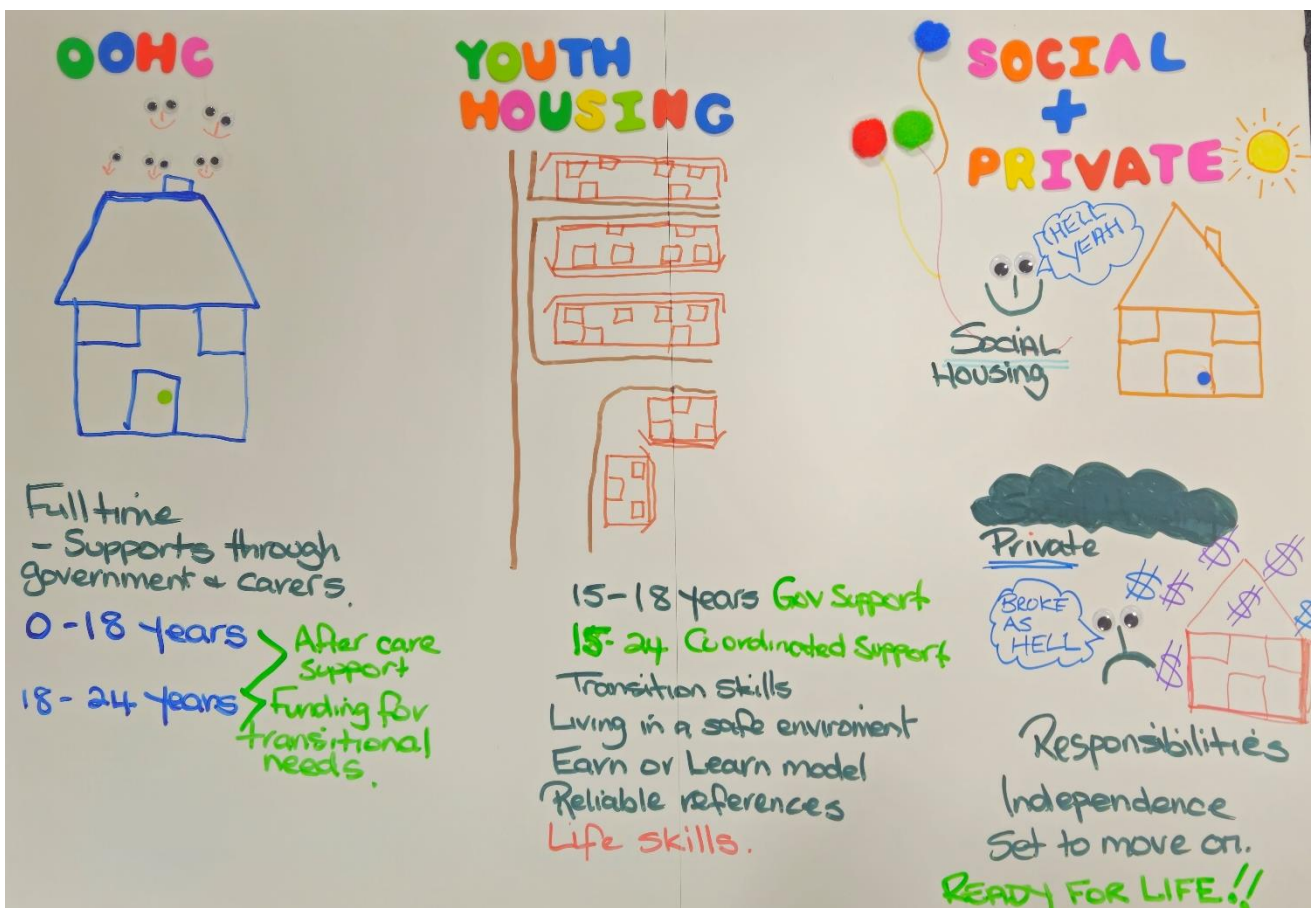 OOHC
Full time
- Supports through
government & carers.
0-18 years
18-24 years
After care
support
Funding for
transitional
needs.
YOUTH
HOUSING
15-18 years Gov Support
15-24 Coordinated Support
Transition Skills
Living in a safe enviroment
Earn or Learn model
Reliable references
Life skills.
SOCIAL
+
PRIVATE
HELL
YEAH
Social
Housing
Private
BROKE
AS
HELL
$ $ $ $ $ $ $
Responsibilities
Independence
Set to move on.
READY FOR LIFE!!